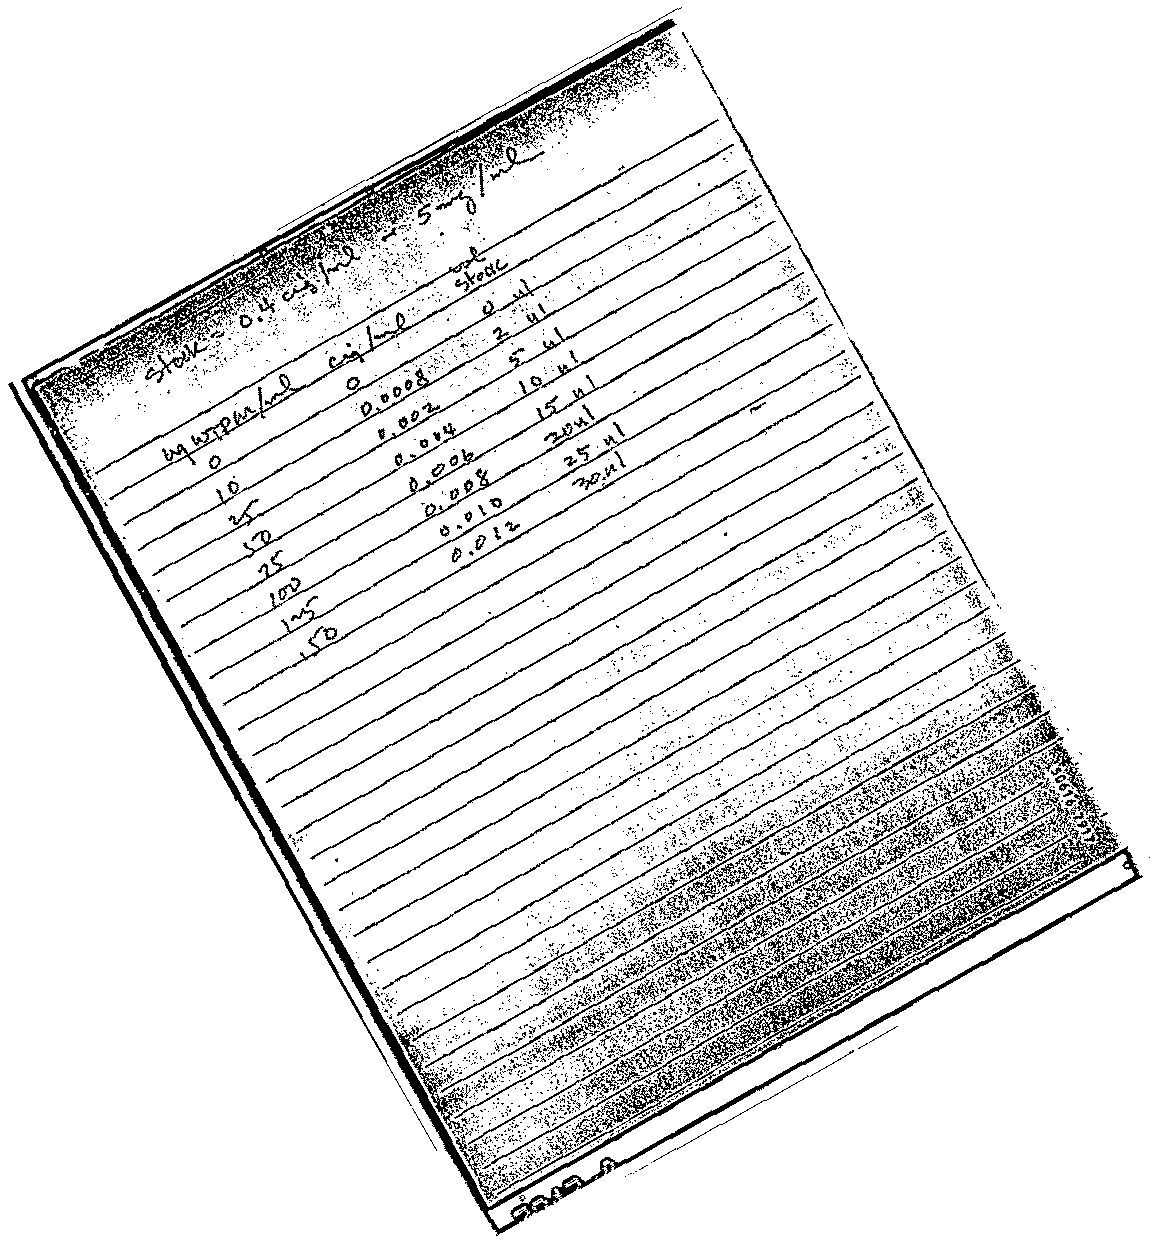 Stock - 0.4 cig/ml = 5 mg/ml
vol
ug WTPM/ml cig/ml stock
0 0 0 ul
10 0.0008 2 ul
25 0.002 5 ul
50 0.004 10 ul
75 0.006 15 ul
100 0.008 20 ul
125 0.010 25 ul
150 0.012 30 ul